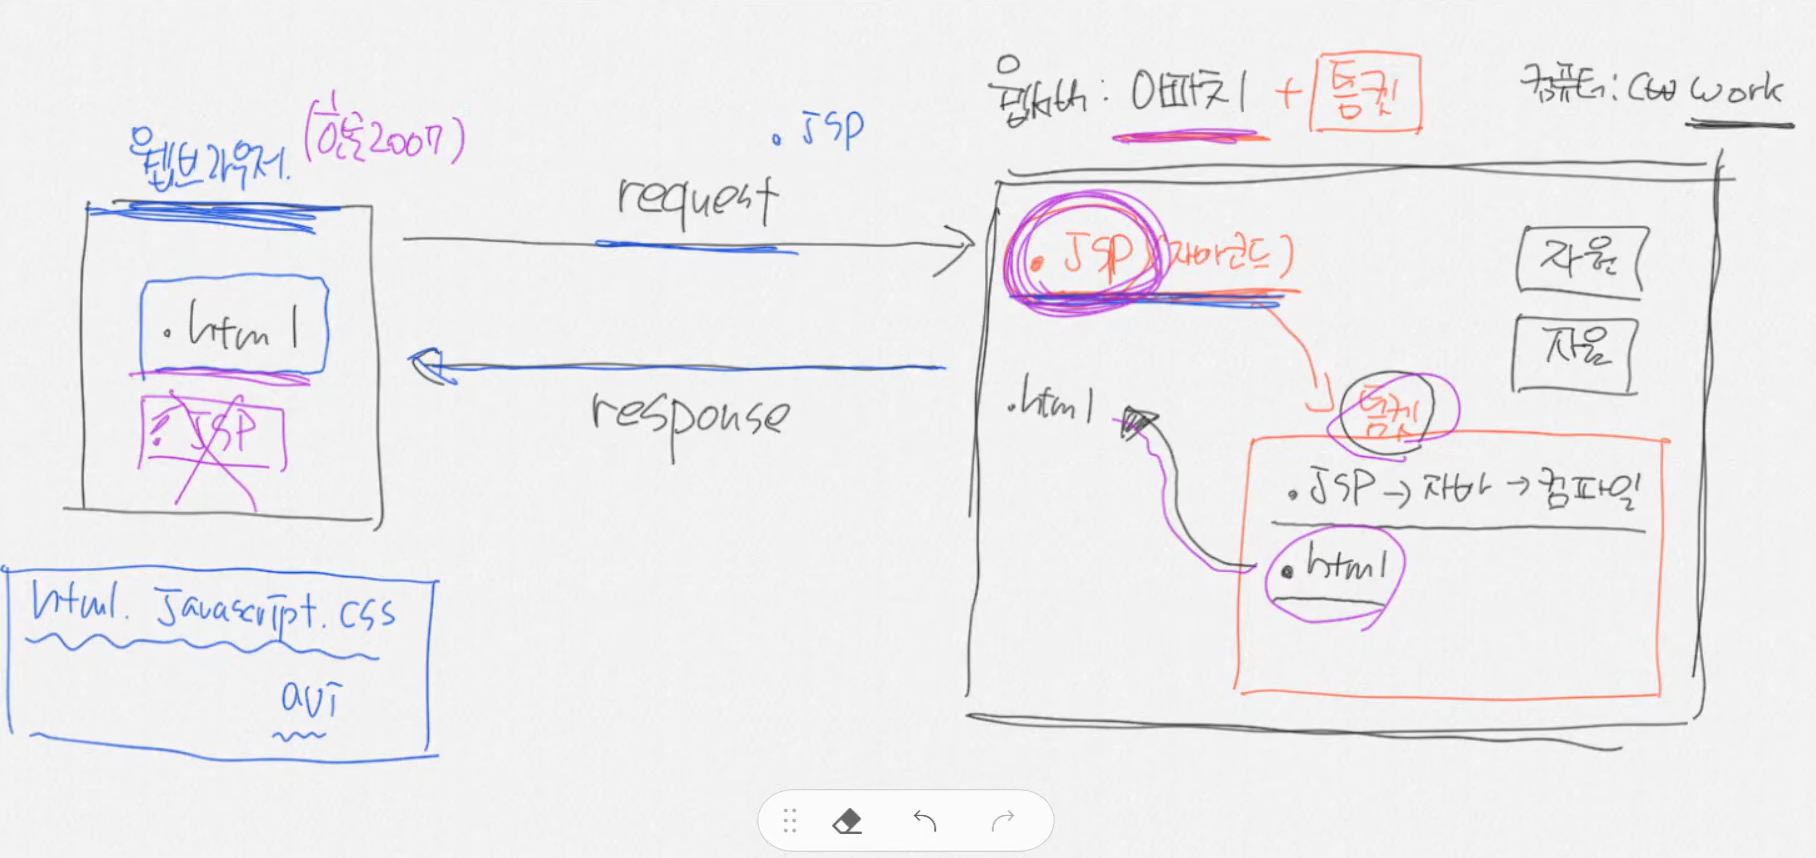 웹브라우저.
(한글2007)
.html
.JSP
html. Javascript. CSS
avi
.JSP
request
response
웹서버: 아파치 + 톰캣
컴퓨터: work
.JSP (자바코드)
자원
자원
.html
톰캣
.JSP → 자바 → 컴파일
.html